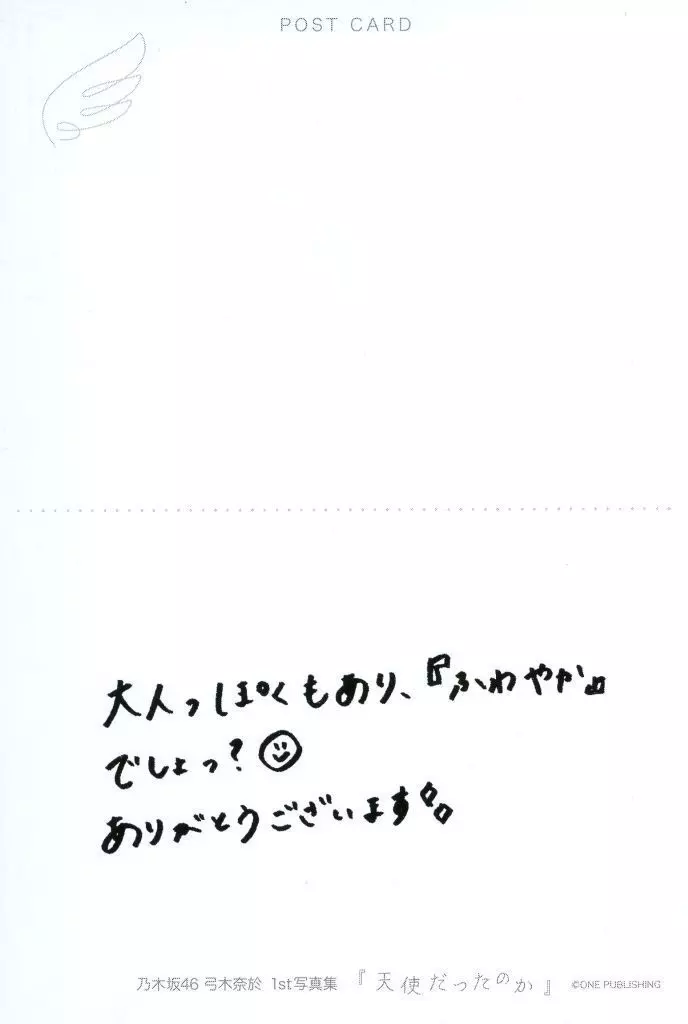 POST CARD
大人っぽくもあり、『ふわやか』
でしょっ?
ありがとうございます
乃木坂46 弓木奈於 1st写真集 『天使だったのか』 ©ONE PUBLISHING